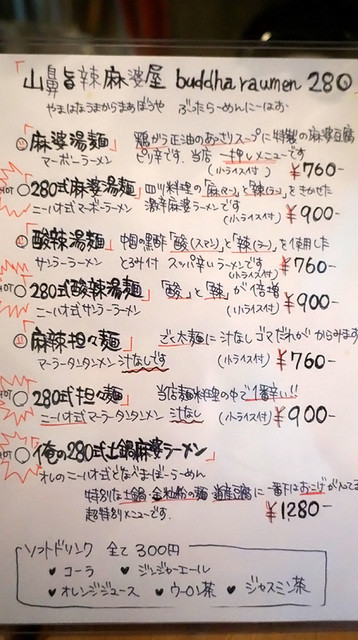 「山鼻旨辣麻婆屋 buddha raumen 280
やまはなうまからまあぼうや ぶったらーめんにーはお
「麻婆湯麺」 鶏がら正油のあっさりスープに特製の麻婆豆腐
マーボーラーメン ピリ辛です。当店一押しメニューです
(小ライス付) ¥760-
HOT 「280式麻婆湯麺」 四川料理の「麻(マー)」と「辣(ラー)」をきかせた
ニーハオ式マーボーラーメン 激辛麻婆ラーメンです
(小ライス付) ¥900-
「酸辣湯麺」 中国の黒酢「酸(スワン)」と「辣(ラー)」を使用した
サンラーラーメン とろみ付 スッパ辛いラーメンです
(小ライス付) ¥760-
HOT 「280式酸辣湯麺」 「酸」と「辣」が倍増
ニーハオ式サンラーラーメン (小ライス付) ¥900-
「麻辣担々麺」 ごく太麺に汁なしゴマだれがからみます
マーラータンタンメン 汁なしです (小ライス付) ¥760-
HOT 「280式担々麺」 当店麺料理の中で1番辛い!!
ニーハオ式マーラータンタンメン 汁なし (小ライス付) ¥900-
HOT 「俺の280式土鍋麻婆ラーメン」
オレのニーハオ式どなべまぼーらーめん
特別な土鍋・の麺・豆腐に一番下はおこげが入って
超特別メニューです。 ¥1280-
ソフトドリンク 全て300円
♥コーラ ♥ジンジャーエール
♥オレンジジュース ♥ウーロン茶 ♥ジャスミン茶